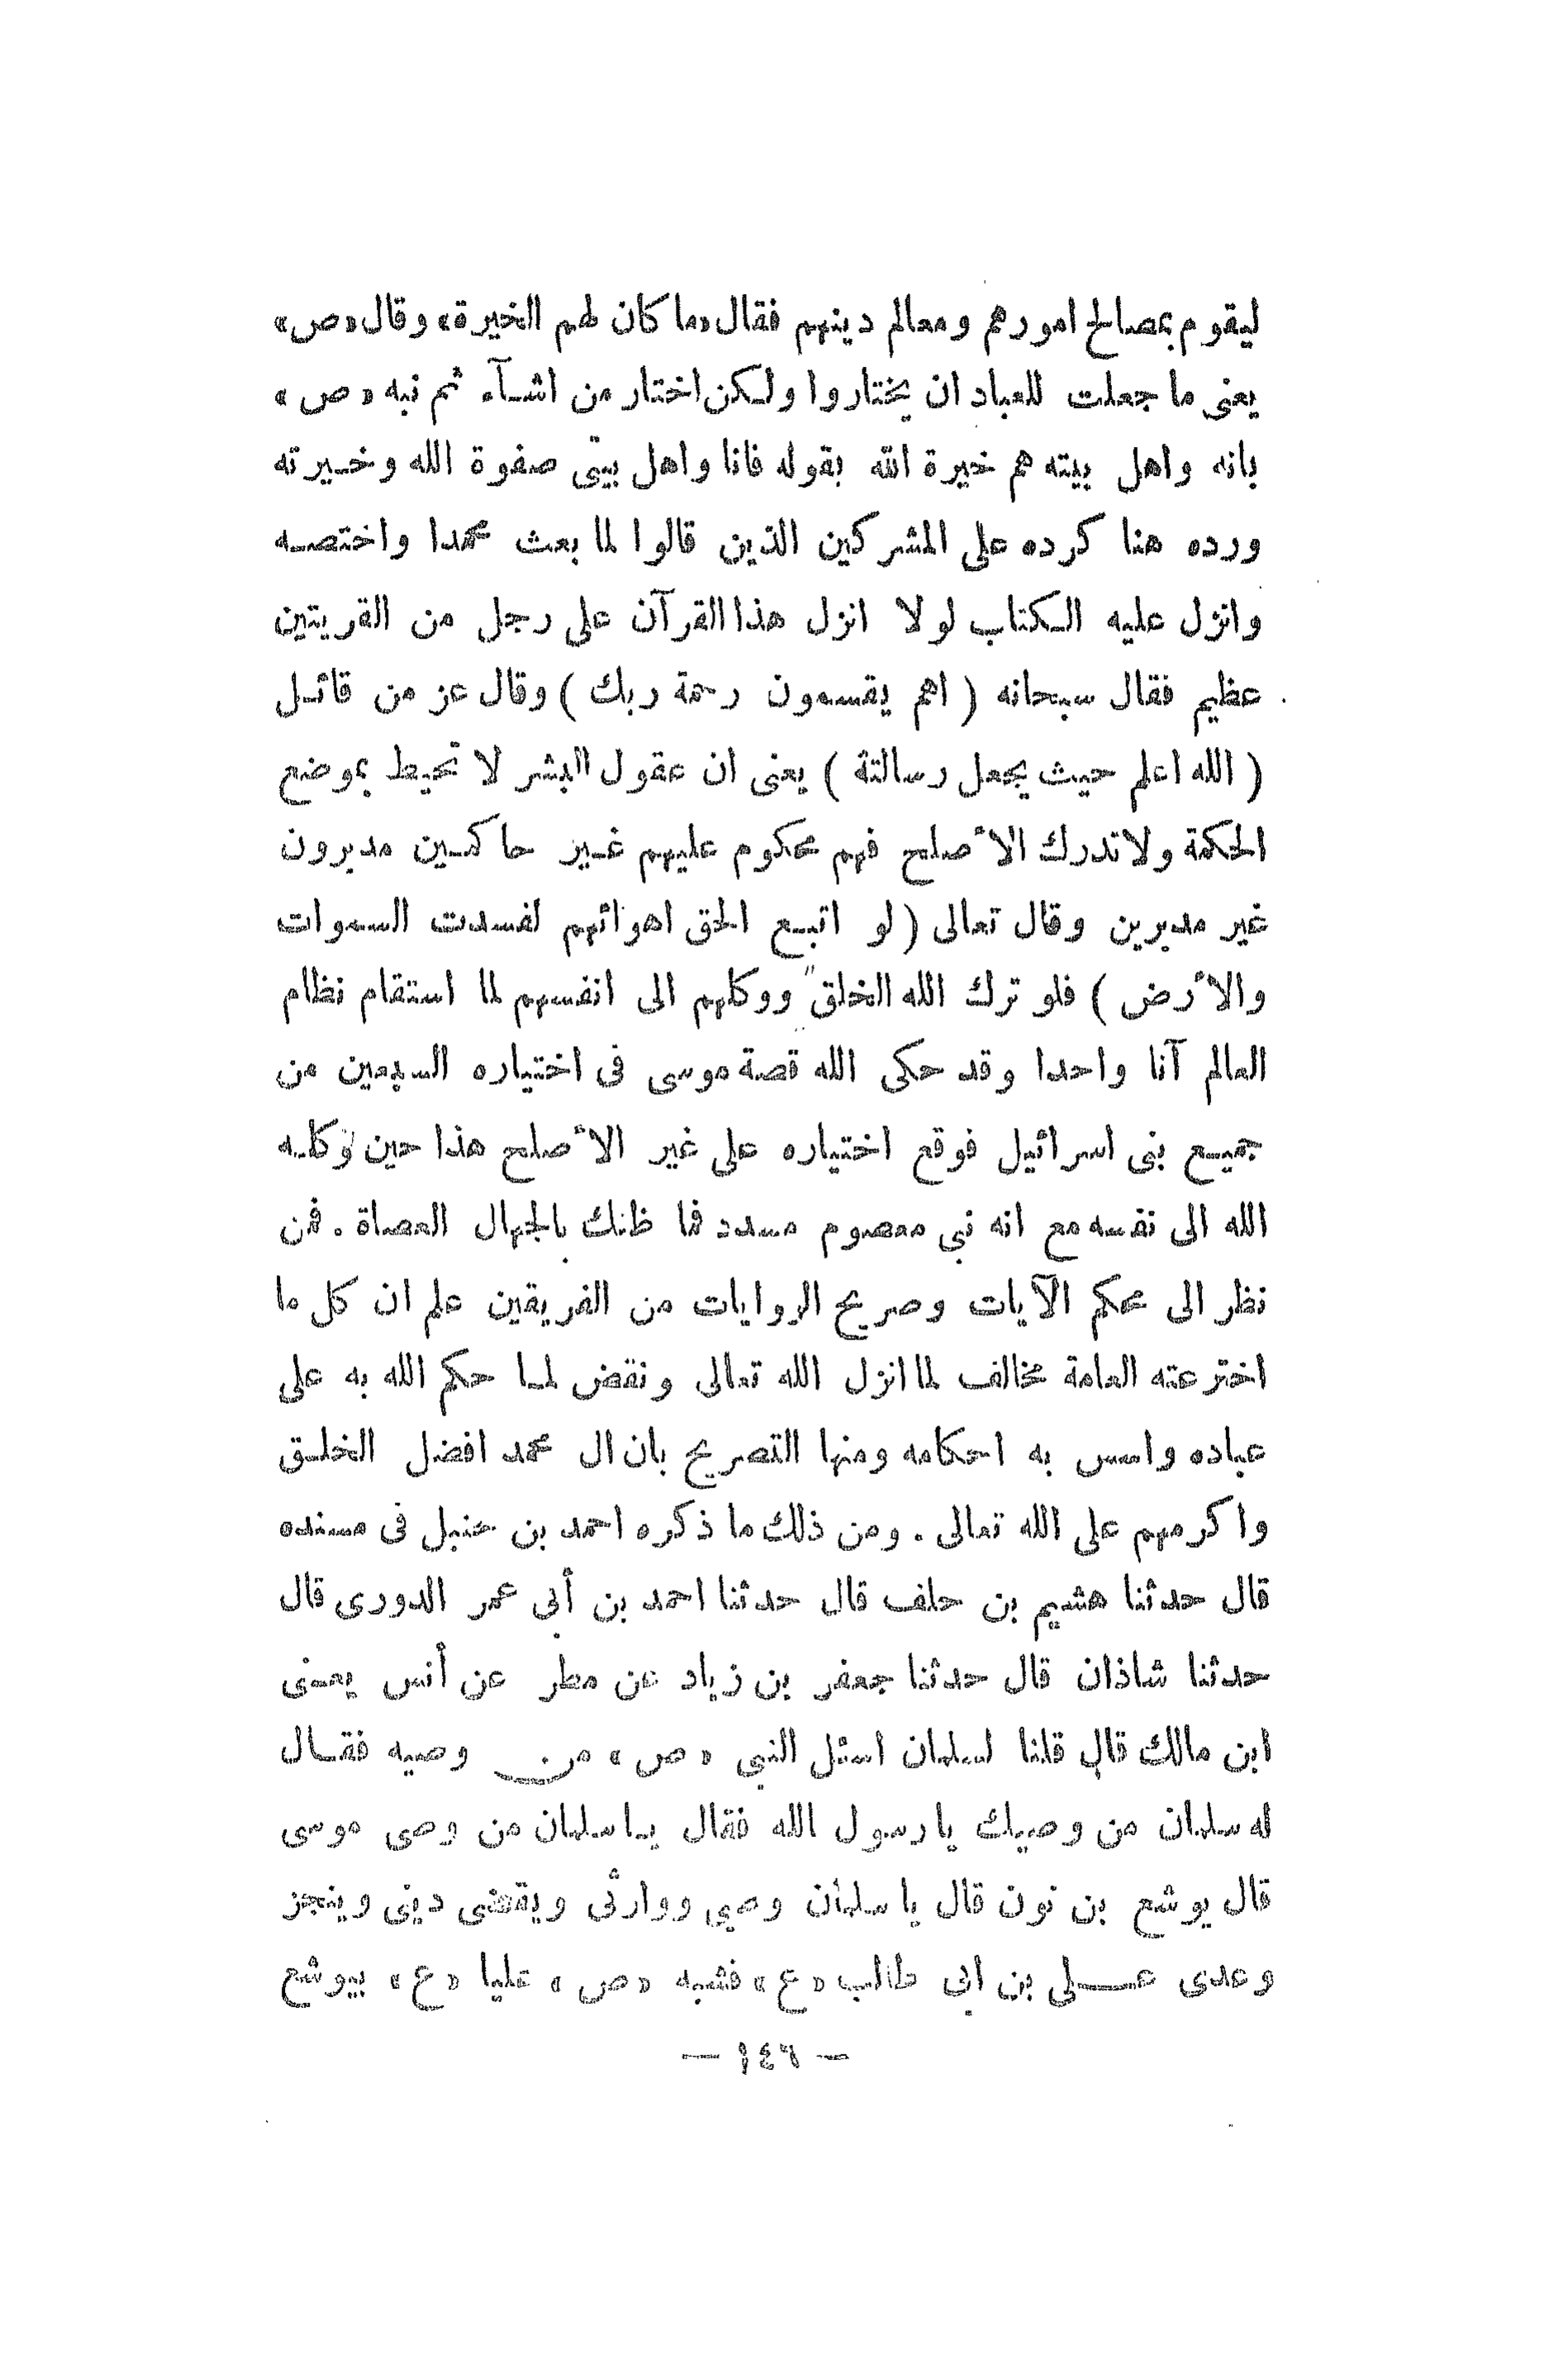 ليقوم بمصالح امورهم ومعالم دينهم فقال «ما كان لهم الخيرة» وقال «ص»
يعنى ما جعلت للعباد ان يختاروا ولكن اختار من اشآء ثم نبه «ص»
بانه واهل بيته هم خيرة الله بقوله فانا واهل بيتى صفوة الله وخيرته
ورده هنا كرده على المشركين الذين قالوا لما بعث محمدا واختصه
وانزل عليه الكتاب لولا انزل هذا القرآن على رجل من القريتين
عظيم فقال سبحانه ( اهم يقسمون رحمة ربك ) وقال عز من قائل
( الله اعلم حيث يجعل رسالتة ) يعنى ان عقول البشر لا تحيط بموضع
الحكمة ولا تدرك الأصلح فهم محكوم عليهم غير حاكمين مدبرون
غير مدبرين وقال تعالى ( لو اتبع الحق اهوائهم لفسدت السموات
والأرض ) فلو ترك الله الخلق ووكلهم الى انفسهم لما استقام نظام
العالم آنا واحدا وقد حكى الله قصة موسى فى اختياره السبعين من
جميع بنى اسرائيل فوقع اختياره على غير الأصلح هذا حين وكله
الله الى نفسه مع انه نبي معصوم مسدد فما ظنك بالجهال العصاة . فمن
نظر الى محكم الآيات وصريح الروايات من الفريقين علم ان كل ما
اخترعته العامة مخالف لما انزل الله تعالى ونقض لما حكم الله به على
عباده واسس به احكامه ومنها التصريح بان ال محمد افضل الخلق
واكرمهم على الله تعالى . ومن ذلك ما ذكره احمد بن حنبل فى مسنده
قال حدثنا هشيم بن حلف قال حدثنا احمد بن أبى عمر الدورى قال
حدثنا شاذان قال حدثنا جعفر بن زياد عن مطر عن أنس يعنى
ابن مالك قال قلنا لسلمان اسئل النبي «ص» من وصيه فقال
له سلمان من وصيك يا رسول الله فقال يا سلمان من وصى موسى
قال يوشع بن نون قال يا سلمان وصيي ووارثى ويقضى دينى وينجز
وعدى على بن ابى طالب «ع» فشبه «ص» عليا «ع» بيوشع
— ١٤٦ —